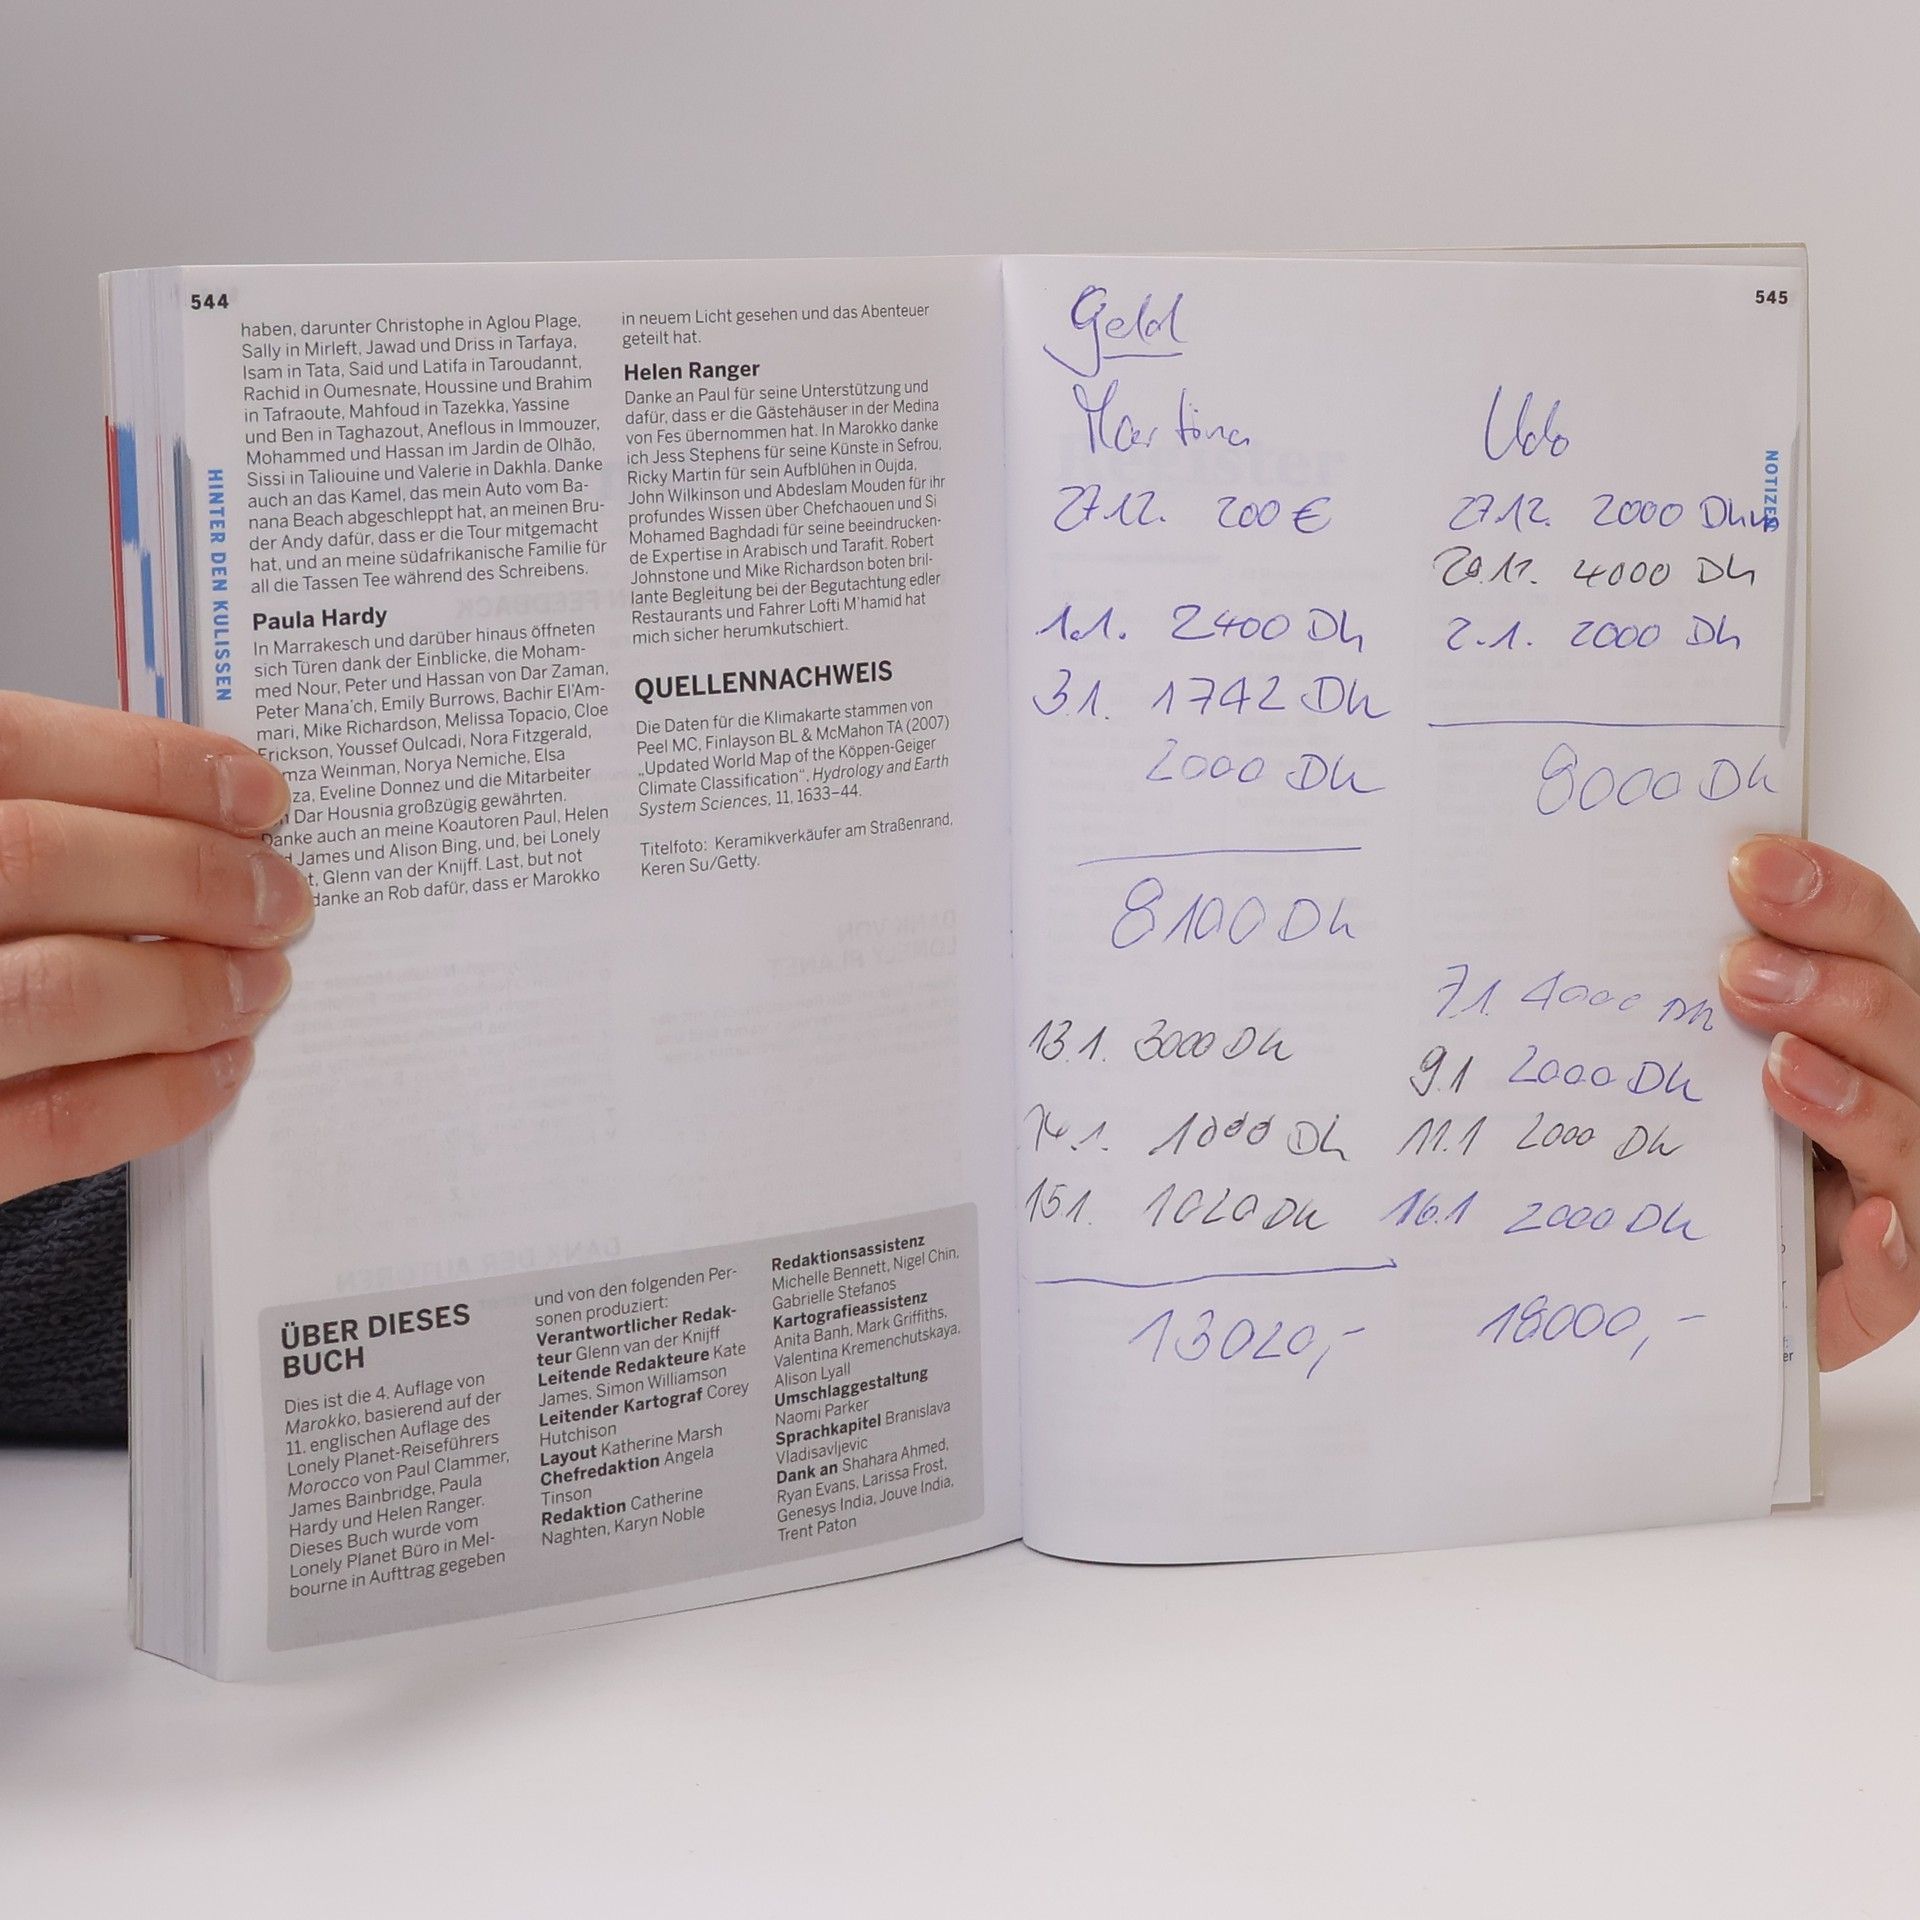 544
HINTER DEN KULISSEN
haben, darunter Christophe in Aglou Plage,
Sally in Mirleft, Jawad und Driss in Tarfaya,
Isam in Tata, Said und Latifa in Taroudannt,
Rachid in Oumesnate, Houssine und Brahim
in Tafraoute, Mahfoud in Tazekka, Yassine
und Ben in Taghazout, Aneflous in Immouzer,
Mohammed und Hassan im Jardin de Olhão,
Sissi in Taliouine und Valerie in Dakhla. Danke
auch an das Kamel, das mein Auto vom Ba-
nana Beach abgeschleppt hat, an meinen Bru-
der Andy dafür, dass er die Tour mitgemacht
hat, und an meine südafrikanische Familie für
all die Tassen Tee während des Schreibens.
Paula Hardy
In Marrakesch und darüber hinaus öffneten
sich Türen dank der Einblicke, die Moham-
med Nour, Peter und Hassan von Dar Zaman,
Peter Mana'ch, Emily Burrows, Bachir El'Am-
mari, Mike Richardson, Melissa Topacio, Cloe
Erickson, Youssef Oulcadi, Nora Fitzgerald,
mza Weinman, Norya Nemiche, Elsa
za, Eveline Donnez und die Mitarbeiter
Dar Housnia großzügig gewährten.
Danke auch an meine Koautoren Paul, Helen
James und Alison Bing, und, bei Lonely
t, Glenn van der Knijff. Last, but not
danke an Rob dafür, dass er Marokko
in neuem Licht gesehen und das Abenteuer
geteilt hat.
Helen Ranger
Danke an Paul für seine Unterstützung und
dafür, dass er die Gästehäuser in der Medina
von Fes übernommen hat. In Marokko danke
ich Jess Stephens für seine Künste in Sefrou,
Ricky Martin für sein Aufblühen in Oujda,
John Wilkinson und Abdeslam Mouden für ihr
profundes Wissen über Chefchaouen und Si
Mohamed Baghdadi für seine beeindrucken-
de Expertise in Arabisch und Tarafit. Robert
Johnstone und Mike Richardson boten bril-
lante Begleitung bei der Begutachtung edler
Restaurants und Fahrer Lofti M'hamid hat
mich sicher herumkutschiert.
QUELLENNACHWEIS
Die Daten für die Klimakarte stammen von
Peel MC, Finlayson BL & McMahon TA (2007)
„Updated World Map of the Köppen-Geiger
Climate Classification“, Hydrology and Earth
System Sciences, 11, 1633–44.
Titelfoto: Keramikverkäufer am Straßenrand,
Keren Su/Getty.
ÜBER DIESES
BUCH
Dies ist die 4. Auflage von
Marokko, basierend auf der
11. englischen Auflage des
Lonely Planet-Reiseführers
Morocco von Paul Clammer,
James Bainbridge, Paula
Hardy und Helen Ranger.
Dieses Buch wurde vom
Lonely Planet Büro in Mel-
bourne in Aufttrag gegeben
und von den folgenden Per-
sonen produziert:
Verantwortlicher Redak-
teur Glenn van der Knijff
Leitende Redakteure Kate
James, Simon Williamson
Leitender Kartograf Corey
Hutchison
Layout Katherine Marsh
Chefredaktion Angela
Tinson
Redaktion Catherine
Naghten, Karyn Noble
Redaktionsassistenz
Michelle Bennett, Nigel Chin,
Gabrielle Stefanos
Kartografieassistenz
Anita Banh, Mark Griffiths,
Valentina Kremenchutskaya,
Alison Lyall
Umschlaggestaltung
Naomi Parker
Sprachkapitel Branislava
Vladisavljevic
Dank an Shahara Ahmed,
Ryan Evans, Larissa Frost,
Genesys India, Jouve India,
Trent Paton
545
NOTIZEN
Geld
Martina
27.12. 200 €
1.1. 2400 Dh
3.1. 1742 Dh
2000 Dh
8100 Dh
13.1. 3000 Dh
14.1. 1000 Dh
15.1. 1020 Dh
13020,-
Udo
27.12. 2000
4000 Dh
2.1. 2000 Dh
8000 Dh
7.1. 4000 Dh
9.1 2000 Dh
11.1 2000 Dh
16.1 2000 Dh
18000,-